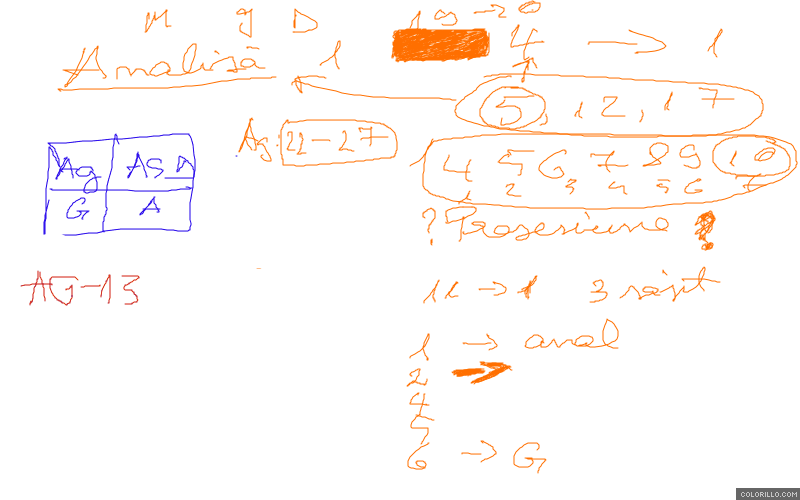 M g D 19 → 20
Analiză 1 4 → 1
5, 12, 17
Ag. 22-27
Ag ASD
G A
4 5 6 7 8 9 10
1 2 3 4 5 6 7
? Procesiune ?
AG-13
11 → 1 3 săpt
1 → anal
2 →
4
5
6 → G
COLORILLO.COM